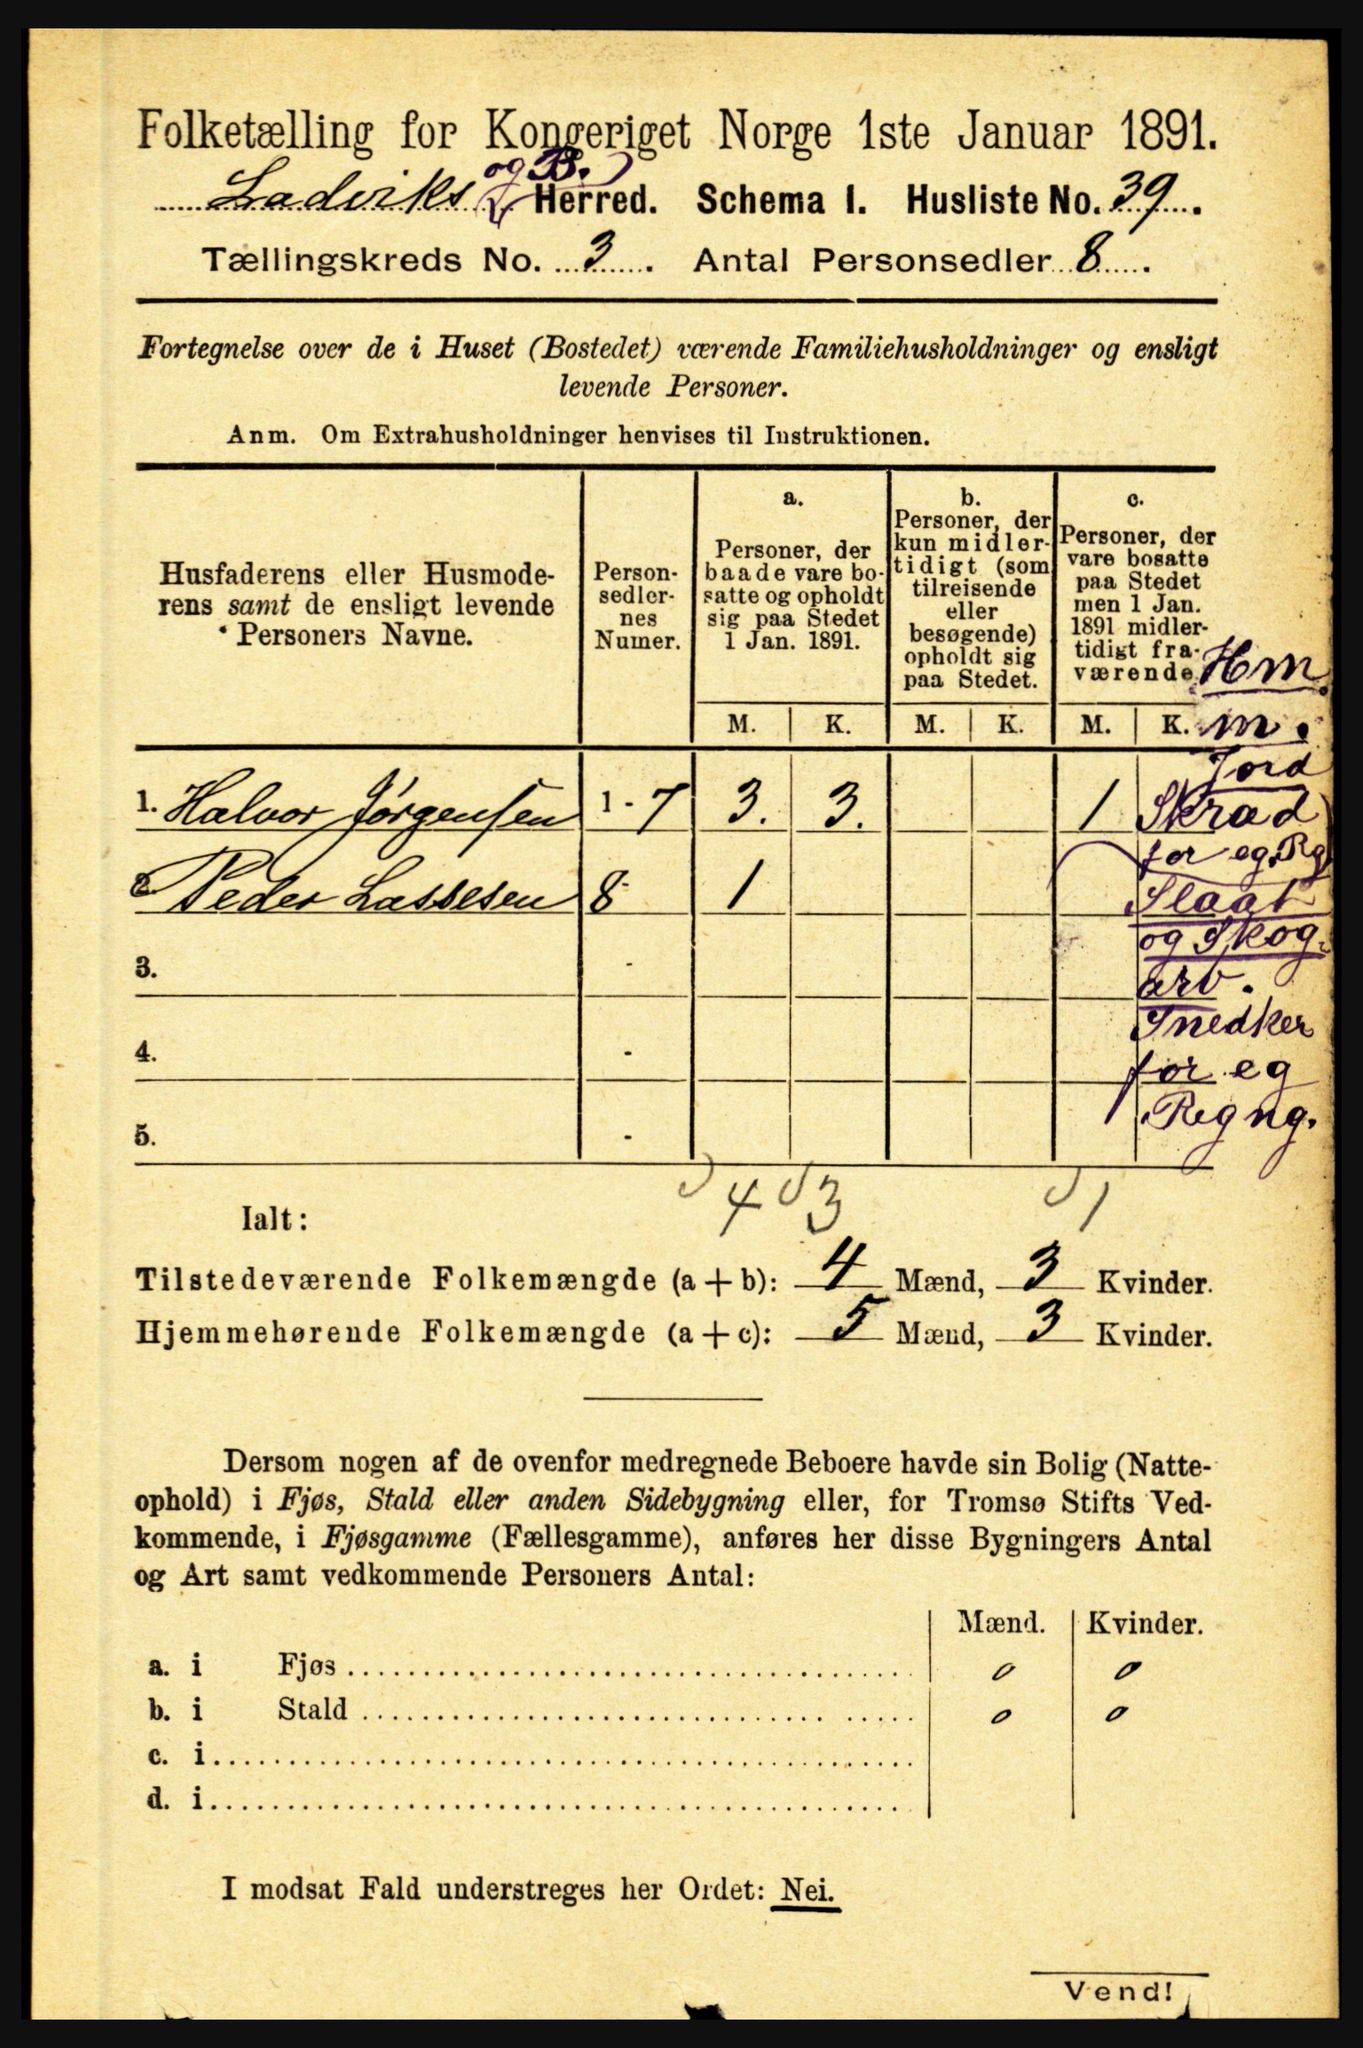 Folketælling for Kongeriget Norge 1ste Januar 1891.
og B.
Ladviks Herred. Schema I. Husliste No. 39.
Tællingskreds No. 3. Antal Personsedler 8.
Fortegnelse over de i Huset (Bostedet) værende Familiehusholdninger og ensligt
levende Personer.
Anm. Om Extrahusholdninger henvises til Instruktionen.
Husfaderens eller Husmode-
rens samt de ensligt levende
Personers Navne.
Person-
sedler-
nes
Numer.
a.
Personer, der
baade vare bo-
satte og opholdt
sig paa Stedet
1 Jan. 1891.
b.
Personer, der
kun midler-
tidigt (som
tilreisende
eller
besøgende)
opholdt sig
paa Stedet.
c.
Personer, der
vare bosatte
paa Stedet
men 1 Jan.
1891 midler-
tidigt fra-
værende
M. K. M. K. M. K.
Hm.
m.
Jord
Skræd
for eg. Rg
Slaat
og Skog-
arb.
Snedker
for eg
Regng.
1. Halvor Jørgensen 1 - 7 3. 3. 1
2 Peder Lassesen 8- 1
3. -
4. -
5. -
4 3 1
Ialt:
Tilstedeværende Folkemængde (a + b): 4 Mænd, 3 Kvinder.
Hjemmehørende Folkemængde (a + c): 5 Mænd, 3 Kvinder.
Dersom nogen af de ovenfor medregnede Beboere havde sin Bolig (Natte-
ophold) i Fjøs, Stald eller anden Sidebygning eller, for Tromsø Stifts Ved-
kommende, i Fjøsgamme (Fællesgamme), anføres her disse Bygningers Antal
og Art samt vedkommende Personers Antal:
Mænd. Kvinder.
a. i Fjøs 0 0
b. i Stald 0 0
c. i
d. i
I modsat Fald understreges her Ordet: Nei.
Vend!